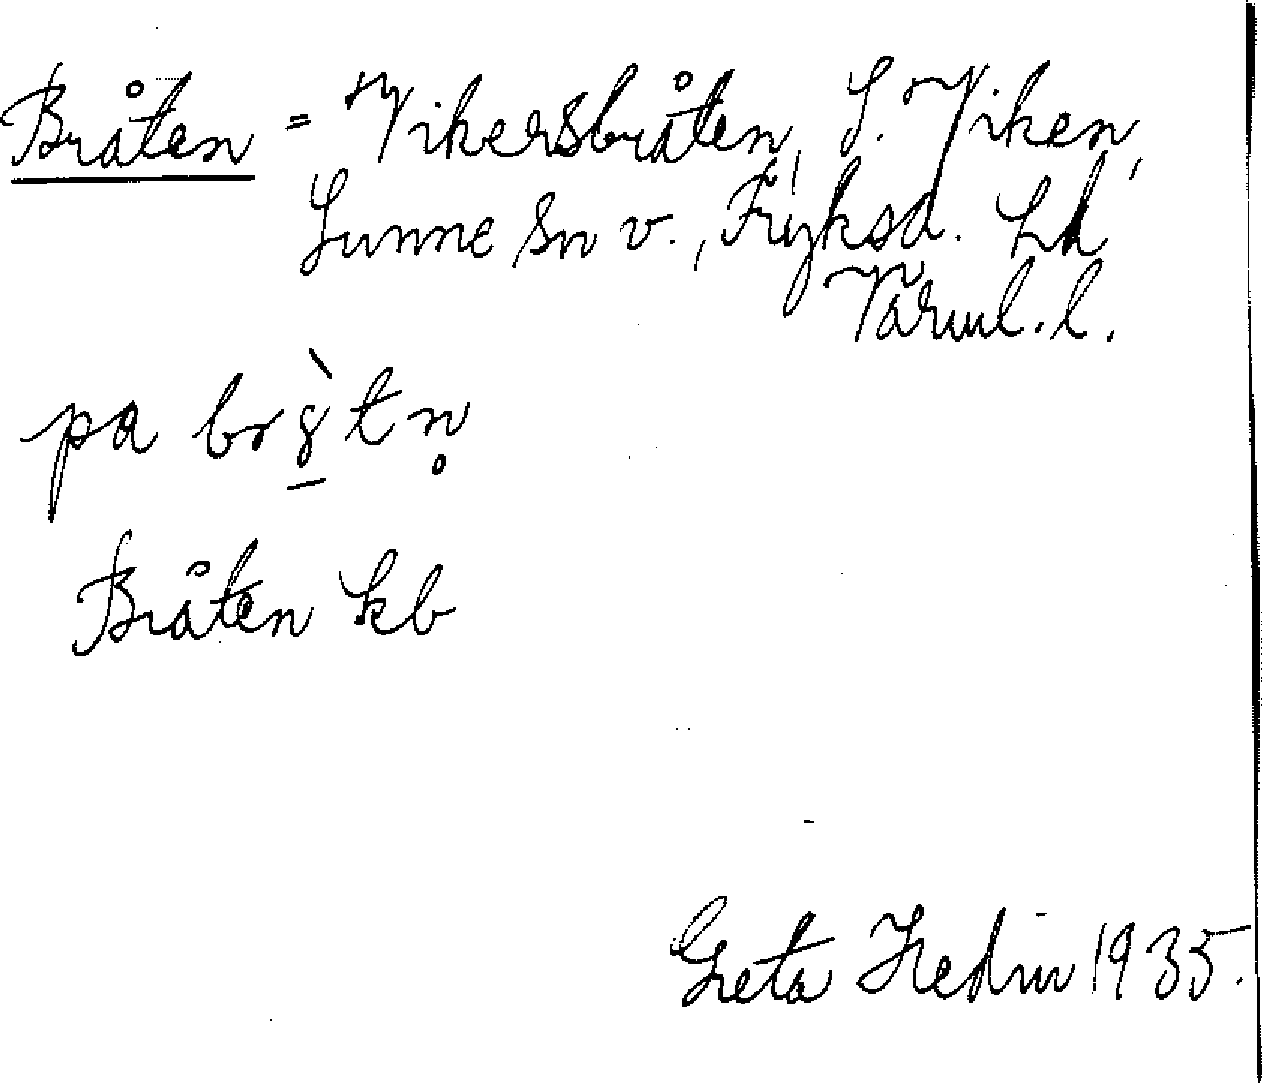 Bråten = Vikersbråten, S. Viken,
Sunne sn v., Fryksd. hd
Värml. l.
pa br8̱̀tn̥
Bråten kb
Greta Hedin 1935.